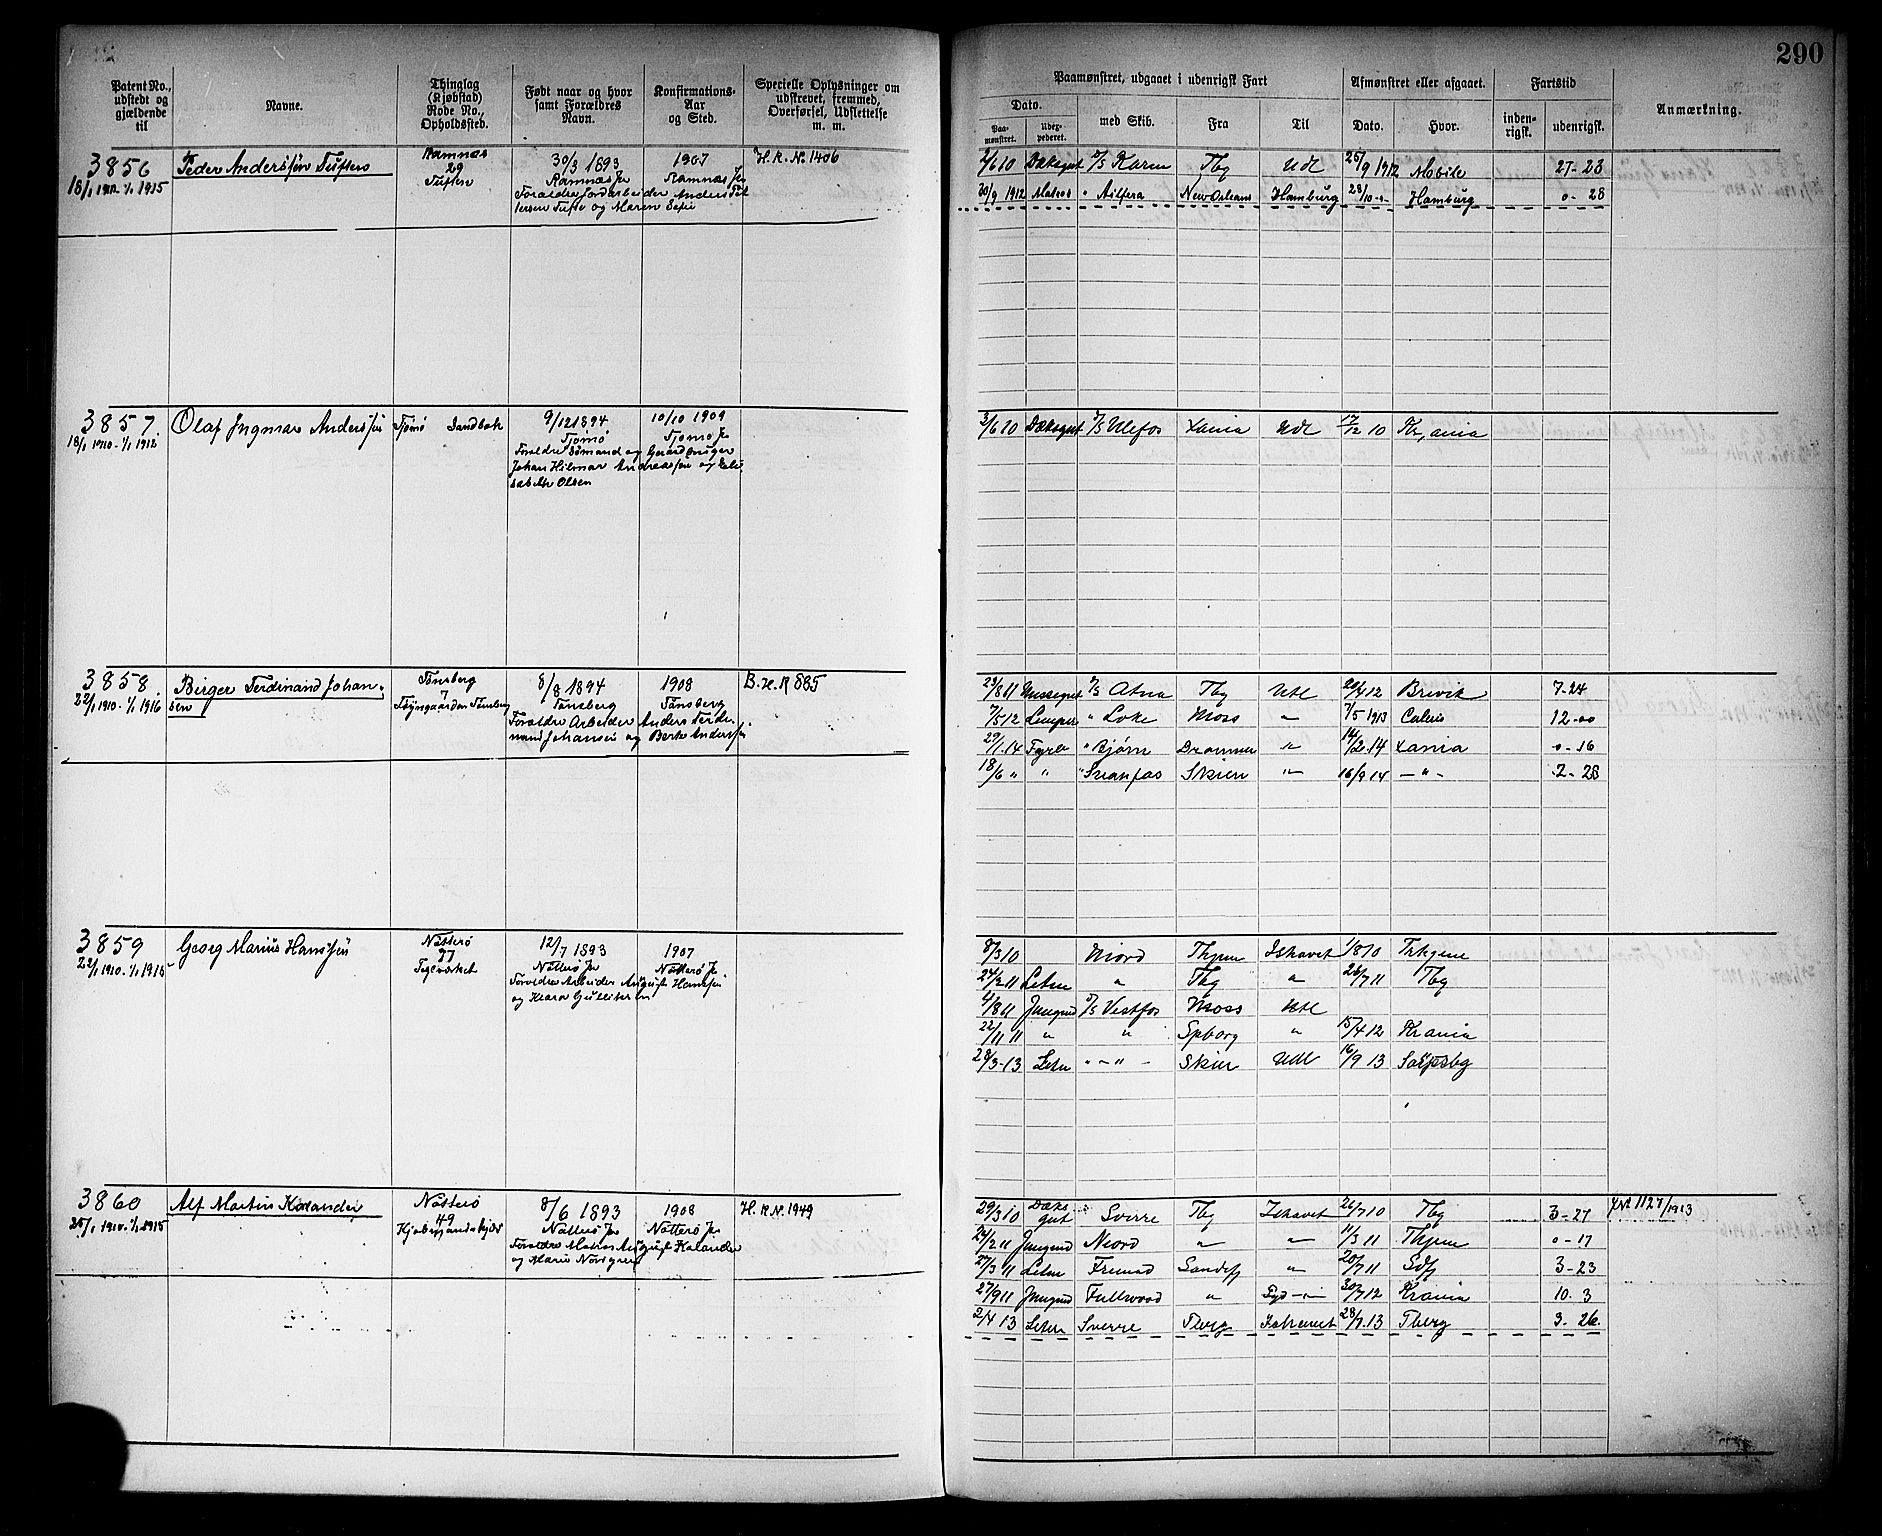 290
Patent No., udstedt og gjældende til
Navne.
Thinglag (Kjøbstad) Rode No., Opholdssted.
Født naar og hvor samt Forældres Navn.
Konfirmations-Aar og Sted.
Specielle Oplysninger om udskrevet, fremmed, Overførsel, Udslettelse m. m.
Paamønstret, udgaaet i udenrigsk Fart
Dato.
Paamønstret.
Udexpederet.
med Skib.
Fra
Til
Afmønstret eller afgaaet.
Dato.
Hvor.
Fartstid
indenrigsk.
udenrigsk.
Anmærkning.
3856
18/1 1910 - 1/1 1915
Peder Anderssøn Tufters
Ramnæs
29
Tuften
30/3 1893
Ramnæs Ps
Forældre Jordarbeider Anders
Tufte og Maren
1907
Ramnæs Ps
H.R. No 1406
2/6 10 Dæksgut D/S Karen Tbg Udl 25/9 1912 Mobile 27-23
30/9 1912 Matros " New Orleans Hamburg 28/10 Hamburg 0-28
3857
18/1 1910 - 1/1 1912
Olaf Ingmar Anderssen
Tjømø Sandbæk
9/12 1894
Tjømø
Forældre Sømand og Gaardbruger
Johan Hilmar Andreassen og Eli
sabeth Olsen
10/10 1909
Tjømø Ps
3/6 10 Dæksgut D/S Ulefos Xania Udl 17/12 10 Kr,ania
3858
22/1 1910 - 1/1 1916
Birger Ferdinand Johan-
sen
Tønsberg
7
Tønsberg
8/8 1894
Tønsberg
Forældre Arbeider Anders Ferdi-
nand Johansen og Berte Anderssen
1908
Tønsberg
B.H.R 885
23/8 11 Messegut D/S Atna Tbg Utl 20/4 12 Brevik 7-24
7/5 12 Lemper " Loke Moss " 7/5 1913 Calais 12-00
29/1 14 Fyrb " Bjørn Drammen " 14/2 14 Xania 0-16
18/6 " " " Svanfos Skien " 16/9 14 - " - 2-28
3859
22/1 1910 - 1/1 1915
Georg Marius Hanssen
Nøtterø
97
12/7 1893
Nøtterø Ps
Forældre Arbeider August Hanssen
og Klara
1907
Nøtterø Ps
8/3 10 Njord Thjem Ishavet 1/8 10
24/2 11 Letm " Tbg " 26/7 11 Tbg
4/8 11 Jungmd D/S Vestfos Moss Utl
22/11 11 " " Spborg " 15/4 12 Krania
28/3-13 Letm " - " - Skien Udl 16/9 13 Sarpsbg
3860
25/1 1910 - 1/1 1915
Alf Martin Kalander
Nøtterø
49
8/6 1893
Nøtterø Ps
Forældre Matros August Kalander
og Marie
1908
Nøtterø Ps
H.R.N. 1949
29/3 10 Dæks
gut Sverre Tbg Ishavet 26/7 10 Tbg 3-27
24/2 11 Jungmd Njord " " 11/3 11 Thjem 0-17
27/3 11 Letm Fremad Sandefj " 20/7 11 Sdfj 3-23
27/9 11 Jungmd Fullwood " Syd - " - 30/7 12 Krania 10-3
2/4 13 Letm Sverre Tberg Ishavet 28/7 13 Tberg 3-26
1127/1913